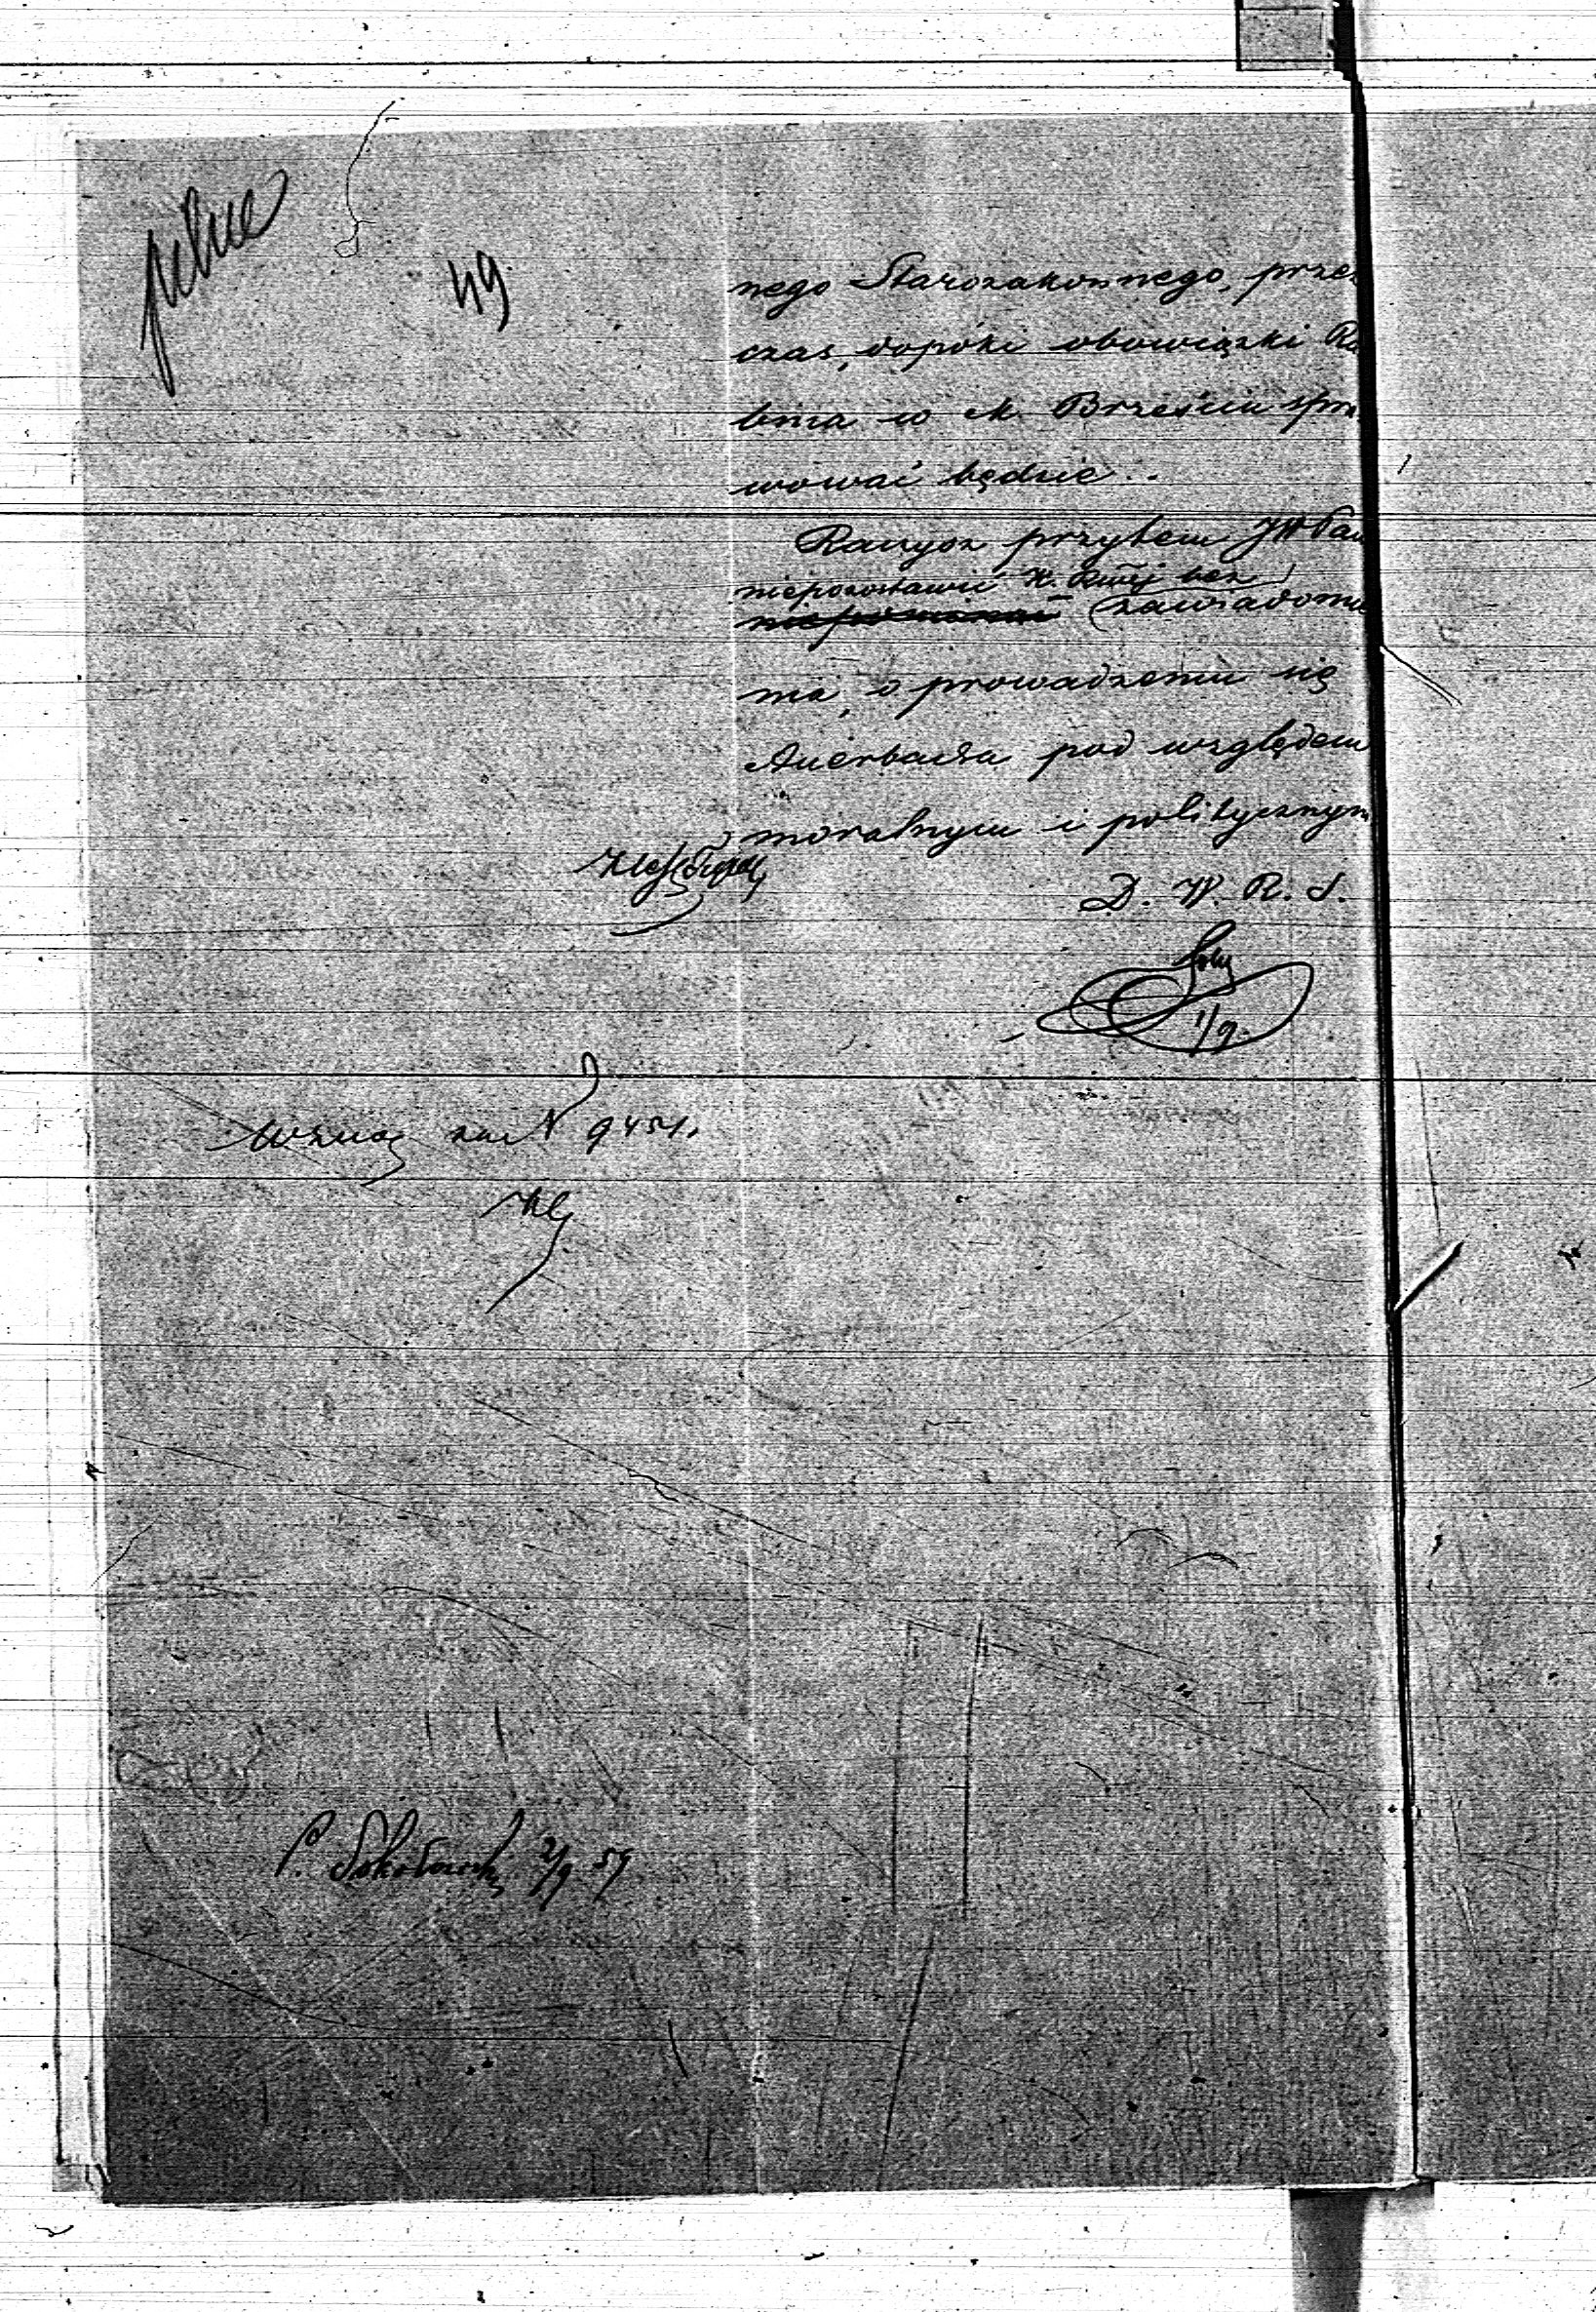 pilne
49
nego Starozakonnego, prze
czas, dopóki obowiązki Ra
bina w M. Brześciu spra
wować będzie.
Raczysz przytem JW Pan
niepozostawić K. Rząd. bez
zawiadomie
nia, o prowadzeniu się
Auerbacha pod względem
moralnym i politycznym
D. W. R. S.
1/9.
za N 9451.
2/9 59